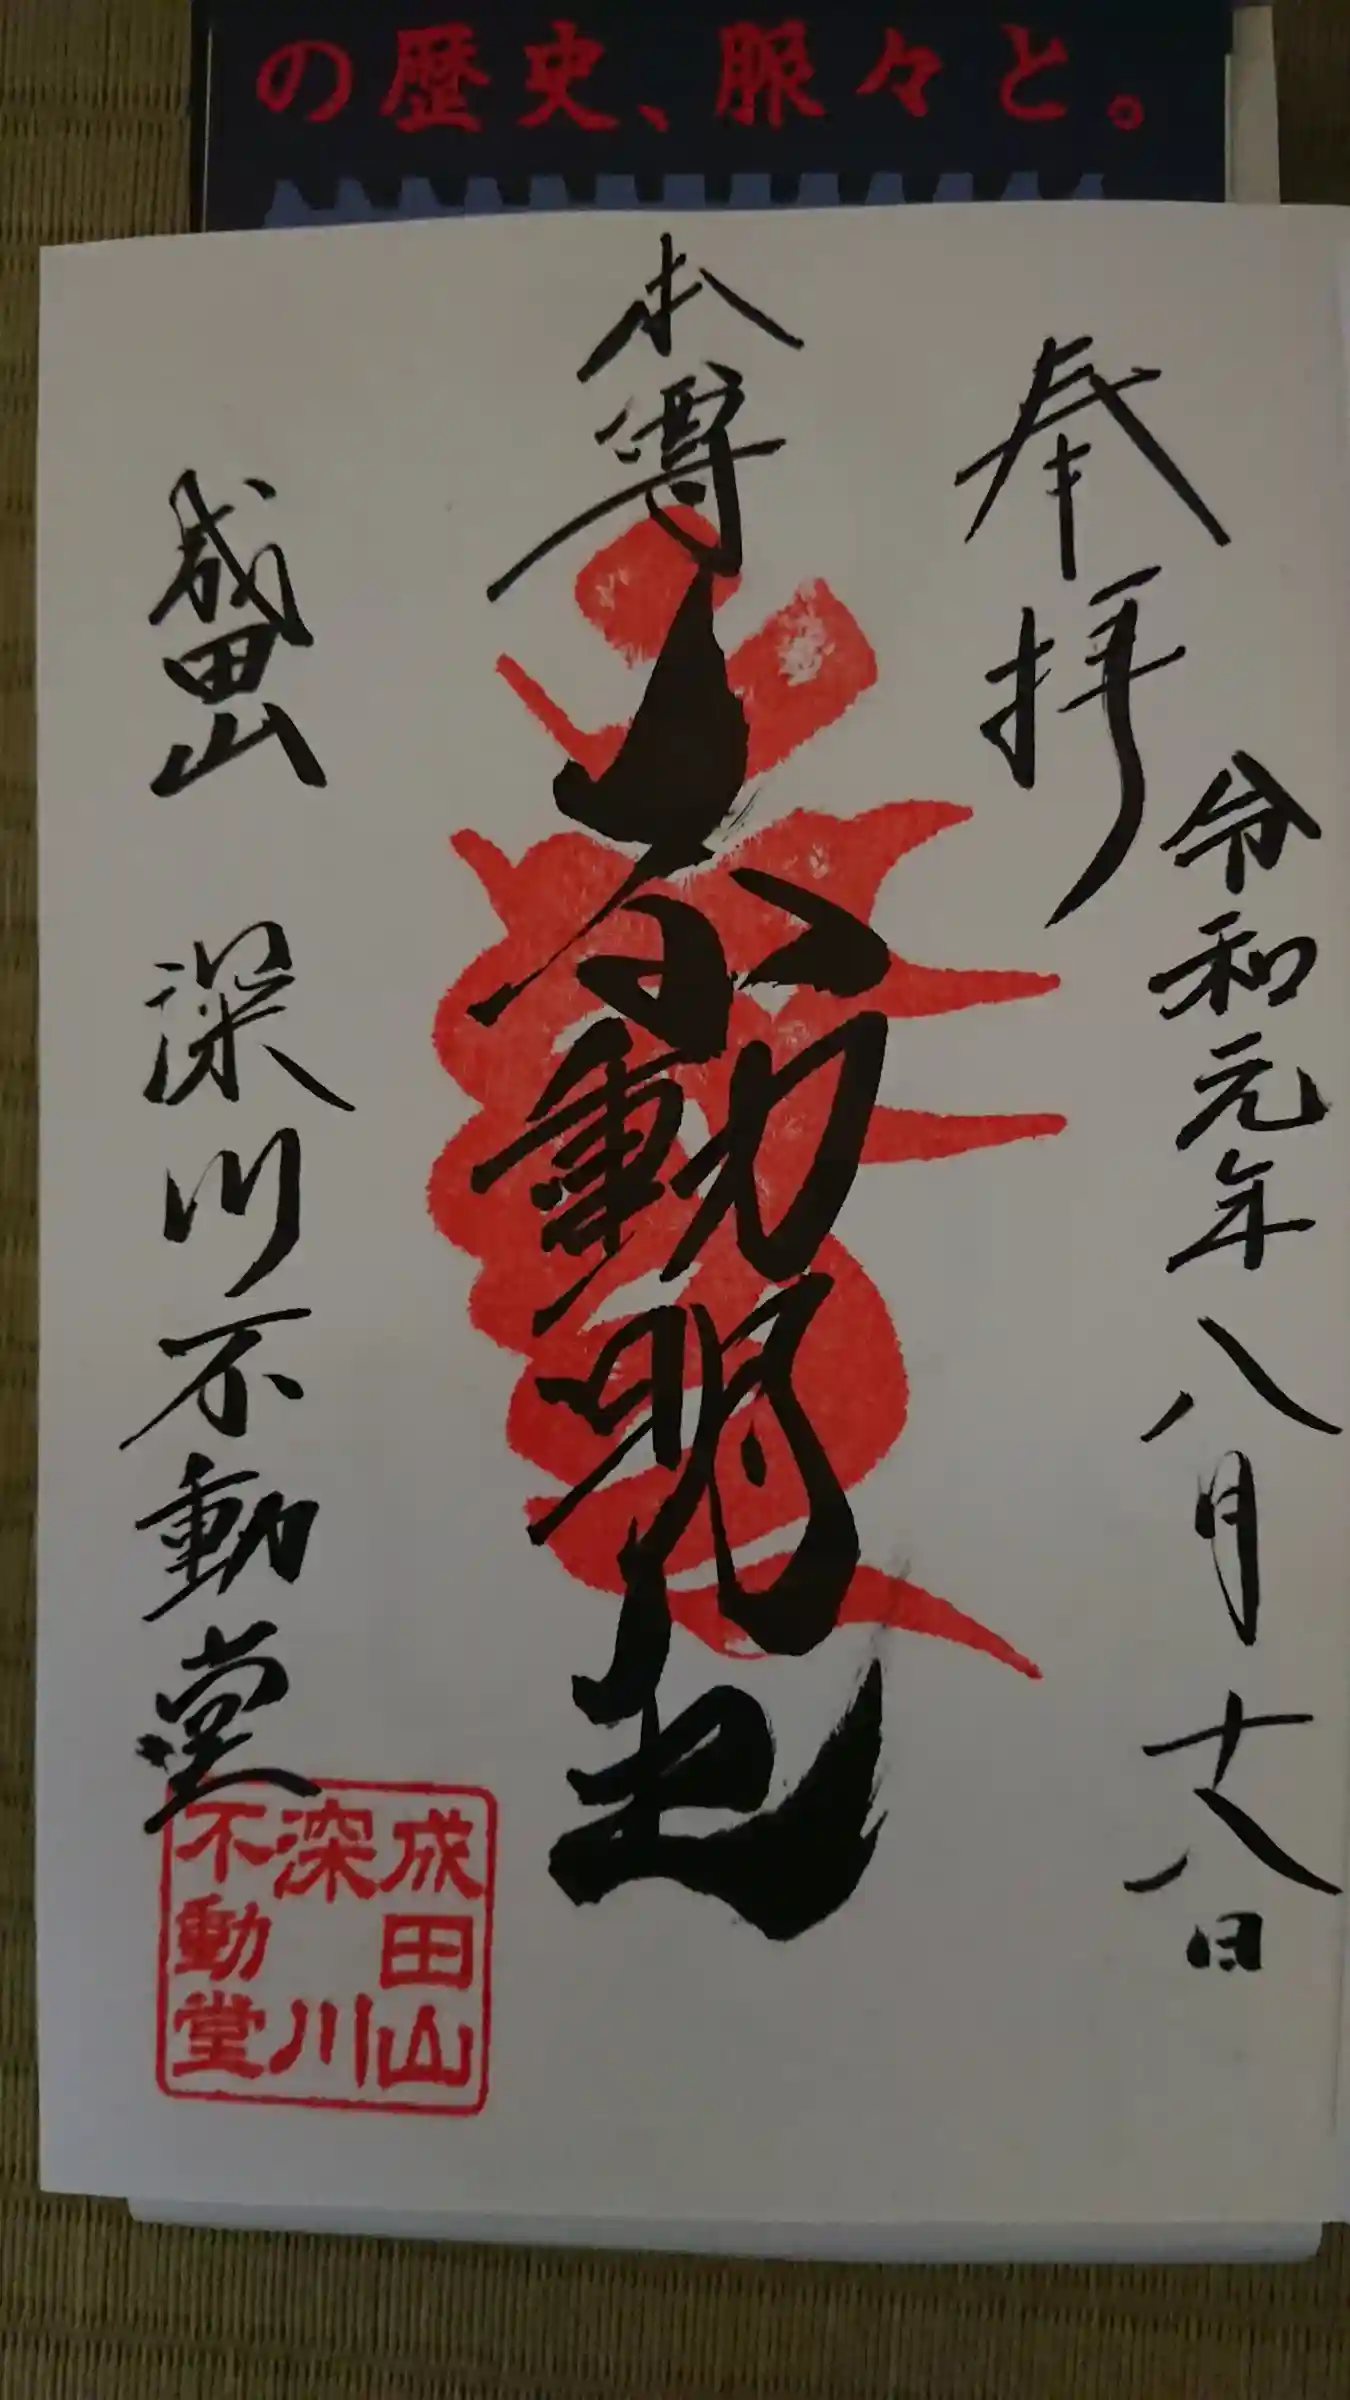 の歴史、脈々と。
奉拝
令和元年八月十八日
本尊
大不動明王
成田山 深川不動堂
成田山
深川
不動堂